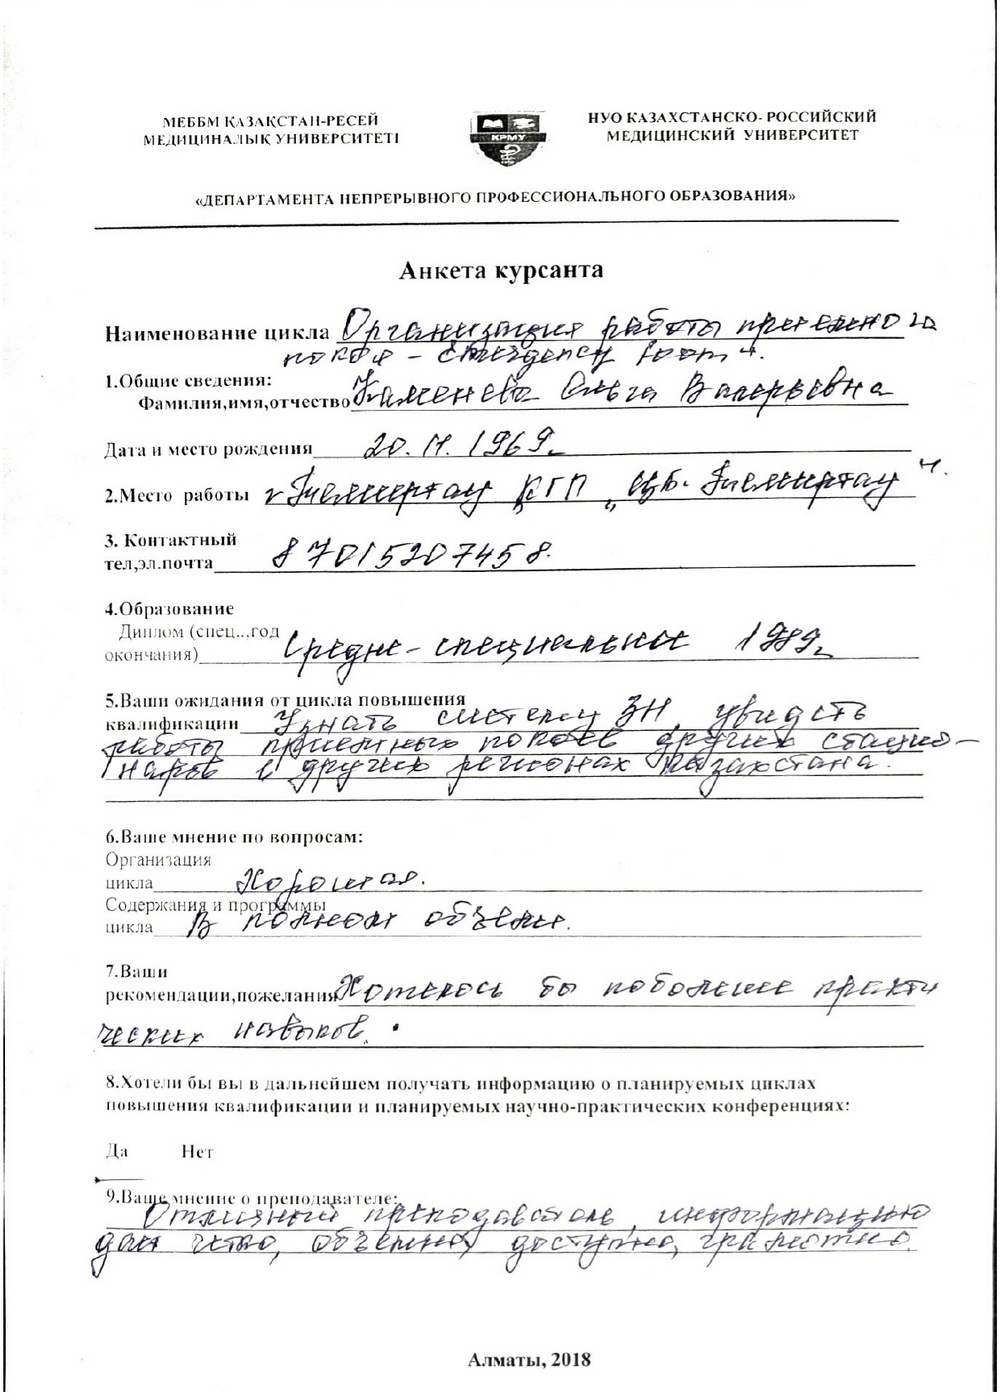 МЕББМ ҚАЗАҚСТАН-РЕСЕЙ
МЕДИЦИНАЛЫҚ УНИВЕРСИТЕТІ
КРМУ
НУО КАЗАХСТАНСКО- РОССИЙСКИЙ
МЕДИЦИНСКИЙ УНИВЕРСИТЕТ
«ДЕПАРТАМЕНТА НЕПРЕРЫВНОГО ПРОФЕССИОНАЛЬНОГО ОБРАЗОВАНИЯ»
Анкета курсанта
Наименование цикла Организация работы приемного
покоя – emergency room".
1.Общие сведения:
Фамилия,имя,отчество Каменева Ольга Валерьевна
Дата и место рождения 20. 11. 1969г.
2.Место работы г Темиртау КГП „ЦБ. Темиртау".
3. Контактный
тел,эл.почта 87015207458.
4.Образование
Диплом (спец..,год
окончания) Средне-специальное 1989г.
5.Ваши ожидания от цикла повышения
квалификации Узнать систему ЗН, увидеть
работы приемных покоев других стацио-
наров в других регионах Казахстана.
6.Ваше мнение по вопросам:
Организация
цикла Хорошая.
Содержания и программы
цикла В полном объеме.
7.Ваши
рекомендации,пожелания Хотелось бы побольше практи
ческих навыков.
8.Хотели бы вы в дальнейшем получать информацию о планируемых циклах
повышения квалификации и планируемых научно-практических конференциях:
Да Нет
9.Ваше мнение о преподавателе:
Отличный преподаватель, информацию
дает четко, объемно, доступно, грамотно.
Алматы, 2018